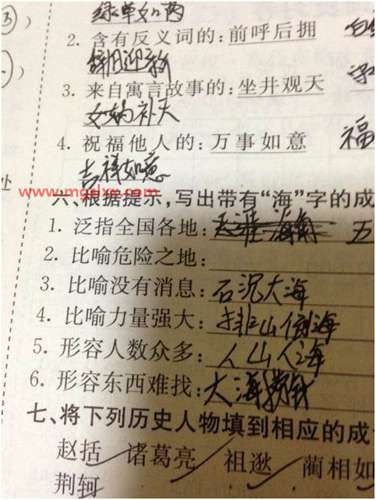 2. 含有反义词的:前呼后拥
辞旧迎新
3. 来自寓言故事的:坐井观天
女娲补天
4. 祝福他人的:万事如意 福
吉祥如意
www.mgslxe.com
六、根据提示,写出带有“海”字的成
1. 泛指全国各地:天涯海角 五
2. 比喻危险之地:
3. 比喻没有消息:石沉大海
4. 比喻力量强大:排山倒海
5. 形容人数众多:人山人海
6. 形容东西难找:大海捞针
七、将下列历史人物填到相应的成
赵括 诸葛亮 祖逖 蔺相如
荆轲